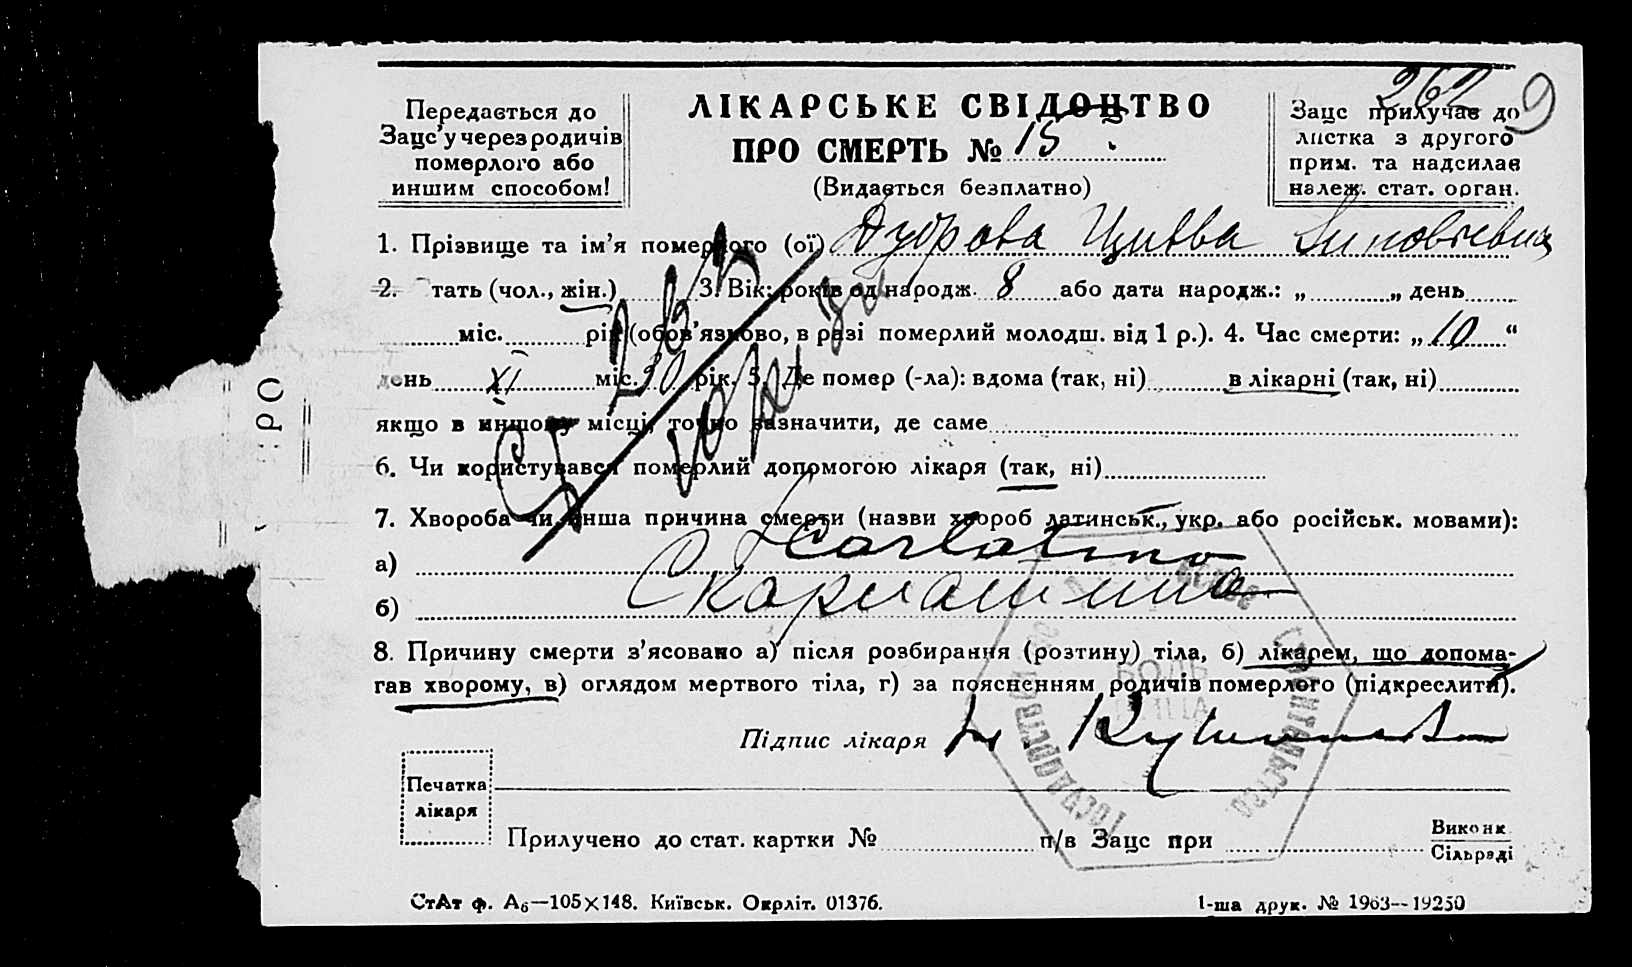 262 9
Передається до
Зацс'у через родичів
померлого або
иншим способом!
ЛІКАРСЬКЕ СВІДОЦТВО
ПРО СМЕРТЬ № 15
(Видається безплатно)
Зацс прилучає до
листка з другого
прим. та надсилає
належ. стат. орган.
1. Прізвище та ім'я померлого (ої) Дуброва Цивва Зиновьевна
2. Стать (чол., жін.) 3. Вік: років од народж. 8 або дата народж.: „ „ день
міс. рік (обов'язково, в разі померлий молодш. від 1 р.). 4. Час смерти: „ 10 “
день XI міс. 30 рік. 5. Де помер (-ла): вдома (так, ні) в лікарні (так, ні)
якщо в иншому місці, точно зазначити, де саме
6. Чи користувався померлий допомогою лікаря (так, ні)
7. Хвороба чи инша причина смерти (назви хвороб латинськ., укр. або російськ. мовами):
а) Scarlatina
б) Скарлатина
8. Причину смерти з'ясовано а) після розбирання (розтину) тіла, б) лікарем, що допома-
гав хворому, в) оглядом мертвого тіла, г) за поясненням родичів померлого (підкреслити).
Підпис лікаря
Печатка
лікаря
Прилучено до стат. картки № п/в Зацс при Виконк.
Сільраді
СтАт ф. А₆—105×148. Київськ. Окрліт. 01376.
1-ша друк. № 1963—19250